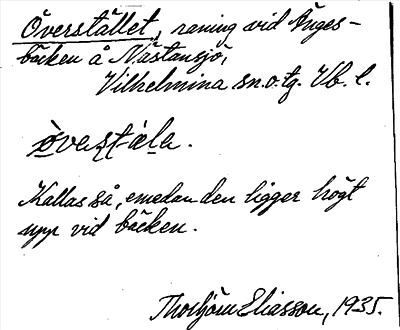 Överstället, raning vid Änges-
bäcken å Nästansjö,
Vilhelmina sn. o. tg. Vb. l.
òvest̥ála.
Kallas så, emedan den ligger högt
upp vid bäcken.
Thorbjörn Eliasson, 1935.